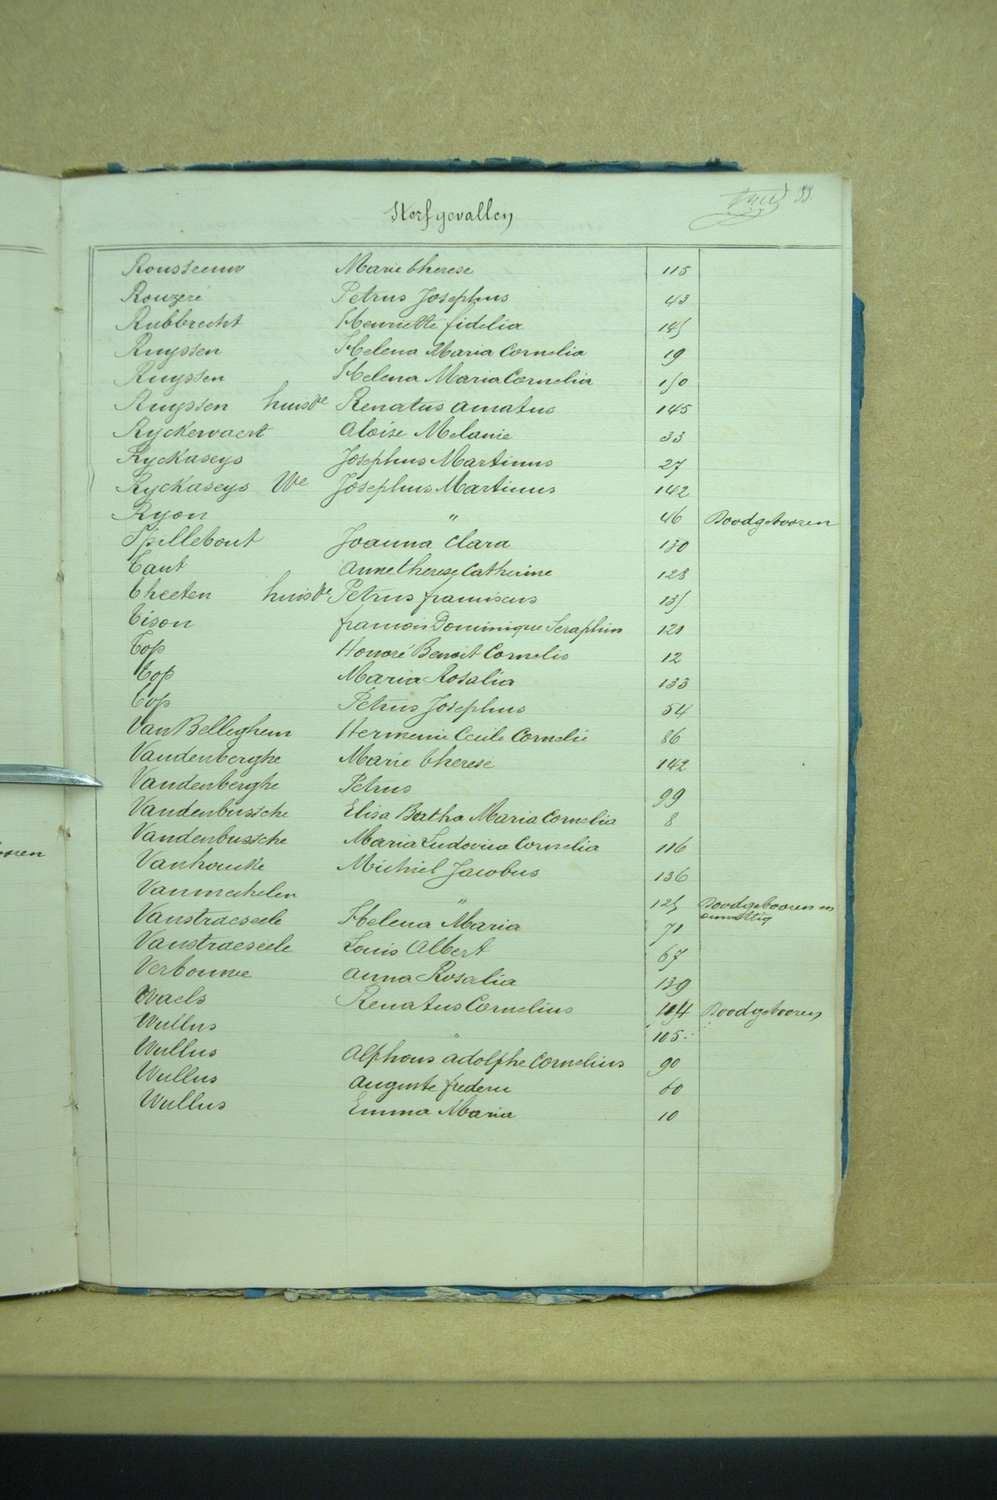 Sterfgevallen 33.
Rousseeuw Marie therese 115
Rouzeré Petrus Josephus 43
Rubbrecht Henriette fidelia 145
Ruyssen Helena Maria Cornelia 19
Ruyssen Helena Maria Cornelia 150
Ruyssen huisde Renatus amatus 145
Ryckewaert Aloise Melanie 33
Ryckaseys Josephus Martinus 27
Ryckaseys We Josephus Martinus 142
Ryon " 46 Doodgebooren
Spillebout Joanna Clara 130
Tant Anne therese Catherine 128
Theeten huisde Petrus franciscus 135
Tison francois Dominique Seraphin 121
Top Honoré Benoit Cornelis 12
Top Maria Rosalia 133
Top Petrus Josephus 54
Van Belleghem Hermenie Cecile Cornelie 86
Vandenberghe Marie therese 142
Vandenberghe Petrus 99
Vandenbussche Elisa Bertha Maria Cornelia 8
Vandenbussche Maria Ludovica Cornelia 116
Vanhoucke Michiel Jacobus 136
Vanmechelen " 125 Doodgebooren en onwettig
Vanstraeseele Helena Maria 71
Vanstraeseele Louis Albert 67
Verbouwe Anna Rosalia 139
Waels Renatus Cornelius 104 Doodgebooren
Wullus " 105
Wullus Alphons adolphe Cornelius 90
Wullus Auguste frederic 60
Wullus Emma Maria 10
ooren